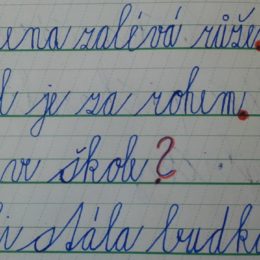 ena zalévá růže.
je za rohem.
ve škole?
stála budka